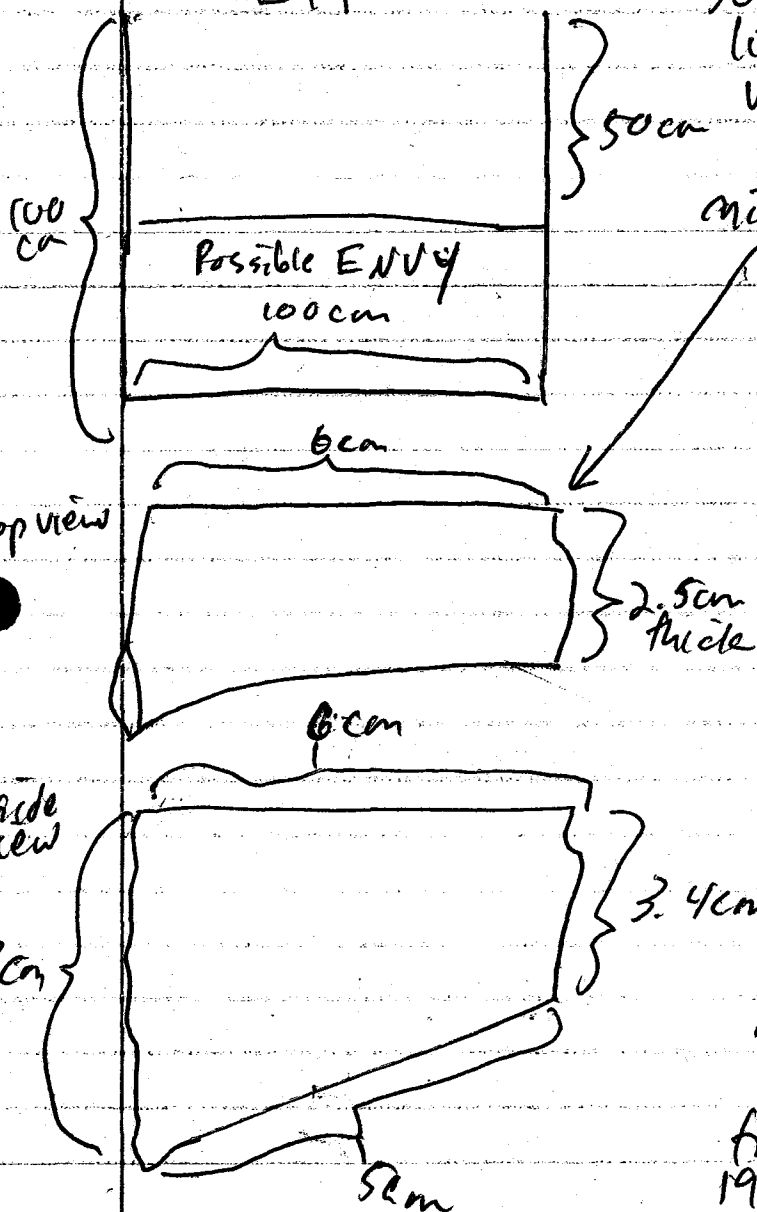 50cm
100
cm
Possible ENVY
100cm
6cm
top view
2.5cm
thick
6cm
side
view
cm
3.4cm
5cm
19